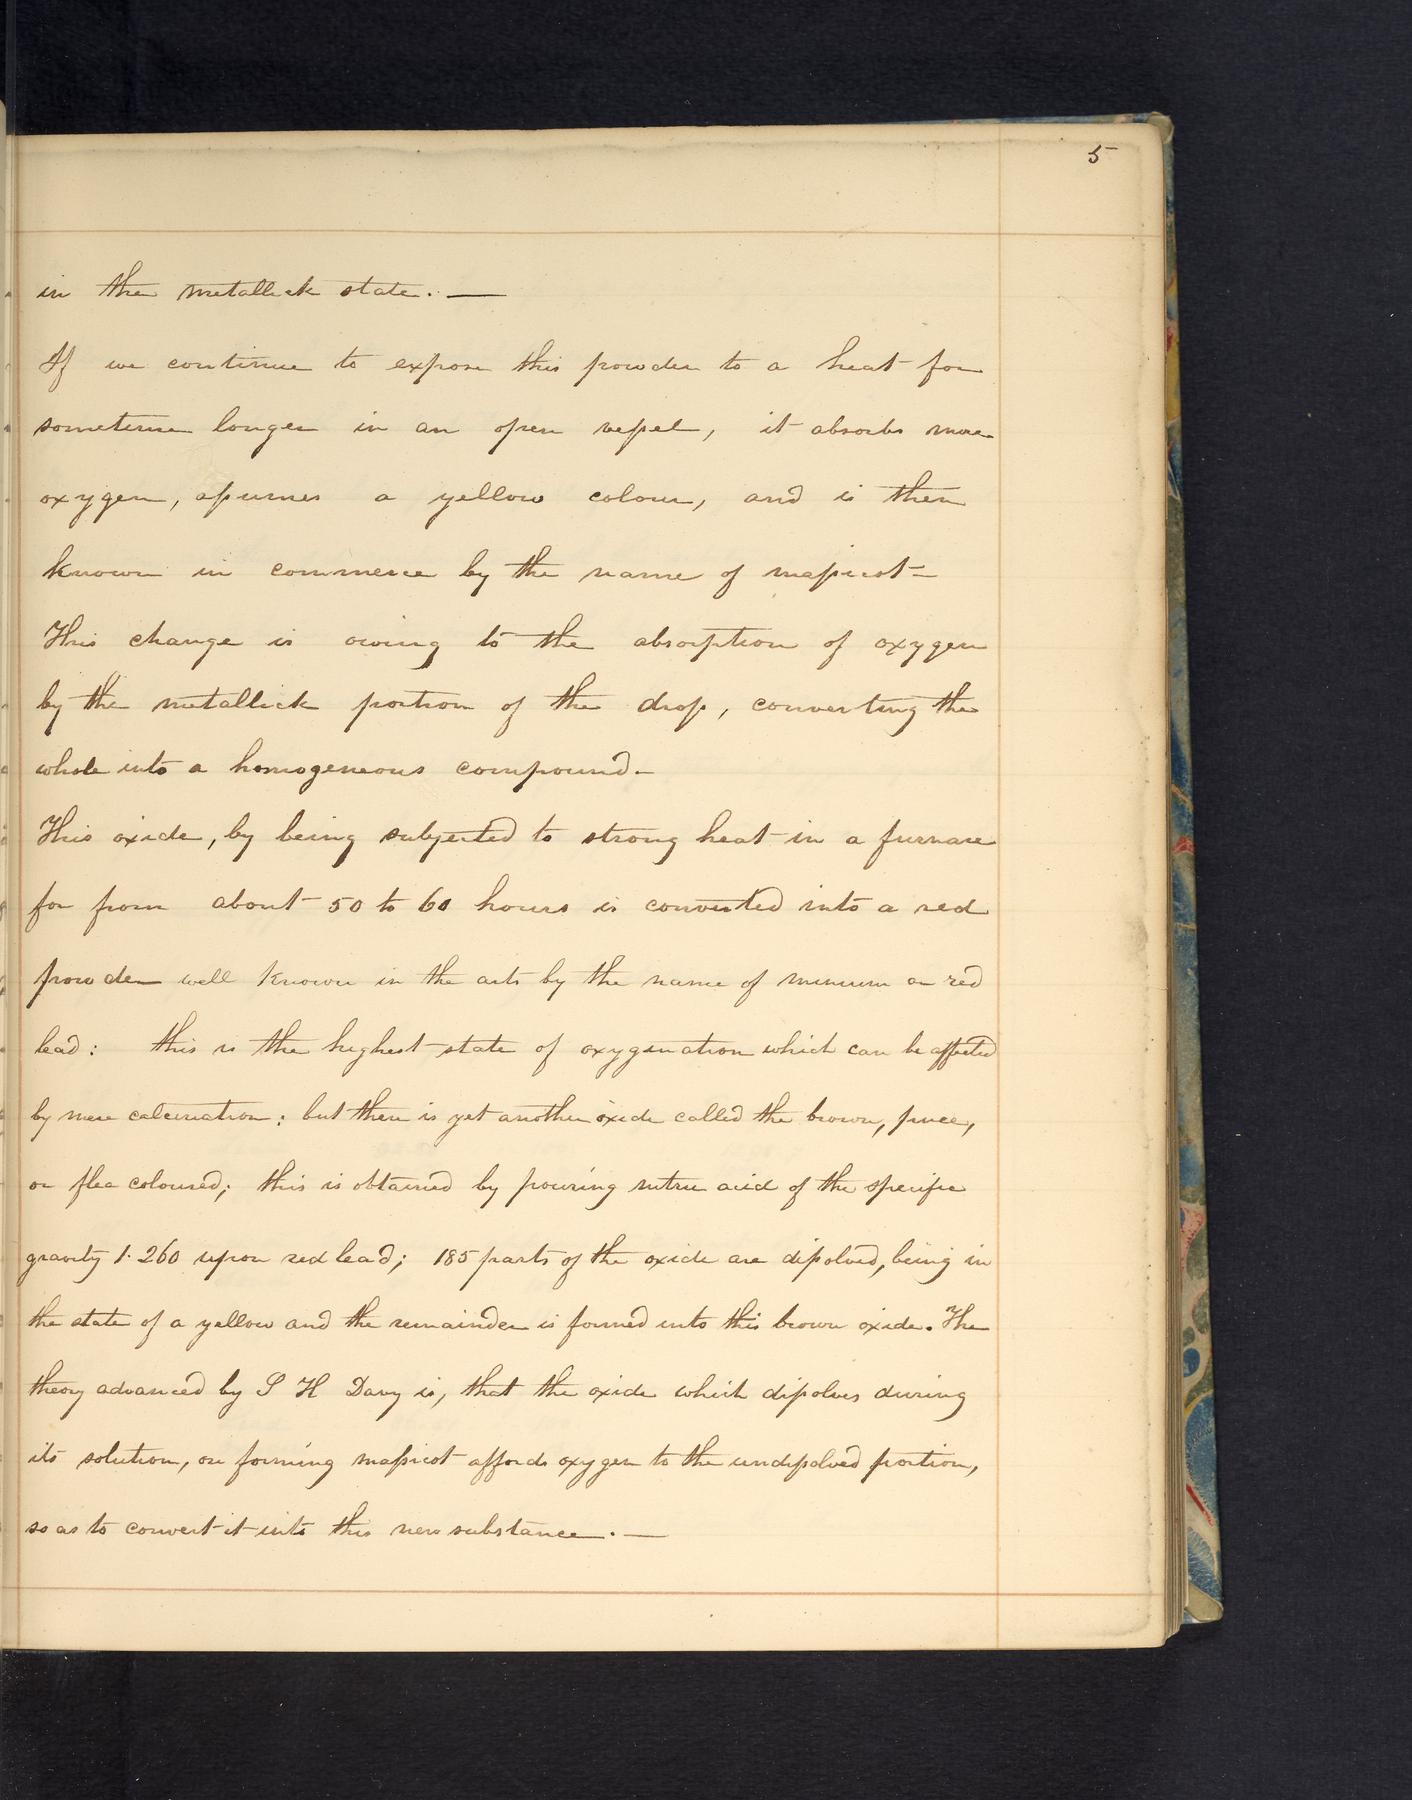 5
in the metallick state. —
If we continue to expose this powder to a heat for
sometime longer in an open vessel, it absorbs more
oxygen, assumes a yellow colour, and is then
known in commerce by the name of massicot —
This change is owing to the absorption of oxygen
by the metallick portion of the dross, converting the
whole into a homogeneous compound. —
This oxide, by being subjected to strong heat in a furnace
for from about 50 to 60 hours is converted into a red
powder well known in the arts by the name of minium or red
lead: this is the highest state of oxygenation which can be affected
by mere calcination: but there is yet another oxide called the brown, puce,
or flea coloured; this is obtained by pouring nitric acid of the specific
gravity 1.260 upon red lead; 185 parts of the oxide are dissolved, being in
the state of a yellow and the remainder is formed into this brown oxide. The
theory advanced by S H Davy is, that the oxide which dissolves during
its solution, or forming massicot affords oxygen to the undissolved portion,
so as to convert it into this new substance. —